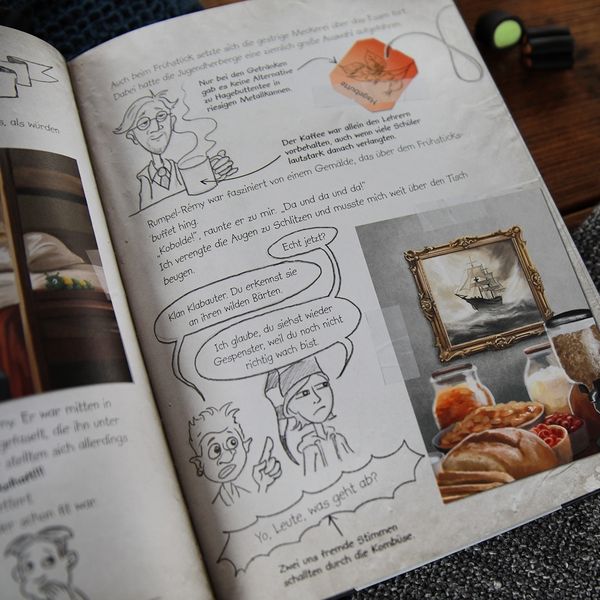 s, als würden
my. Er war mitten in
gefuselt, die ihn unter
stellten sich allerdings
er schon 81 war.
Auch beim Frühstück setzte sich die gestrige Meckerei über das Essen fort.
Dabei hatte die Jugendherberge eine ziemlich große Auswahl aufgefahren.
Nur bei den Getränken
gab es keine Alternative
zu Hagebuttentee in
riesigen Metallkannen.
Hagebutte
Der Kaffee war allein den Lehrern
vorbehalten, auch wenn viele Schüler
lautstark danach verlangten.
Rumpel-Rémy war fasziniert von einem Gemälde, das über dem Frühstücks-
buffet hing.
„Kobolde!“, raunte er zu mir. „Da und da und da!“
Ich verengte die Augen zu Schlitzen und musste mich weit über den Tisch
beugen.
Echt jetzt?
Klan Klabauter. Du erkennst sie
an ihren wilden Bärten.
Ich glaube, du siehst wieder
Gespenster, weil du noch nicht
richtig wach bist.
Yo, Leute, was geht ab?
Zwei uns fremde Stimmen
schallten durch die Kombüse.